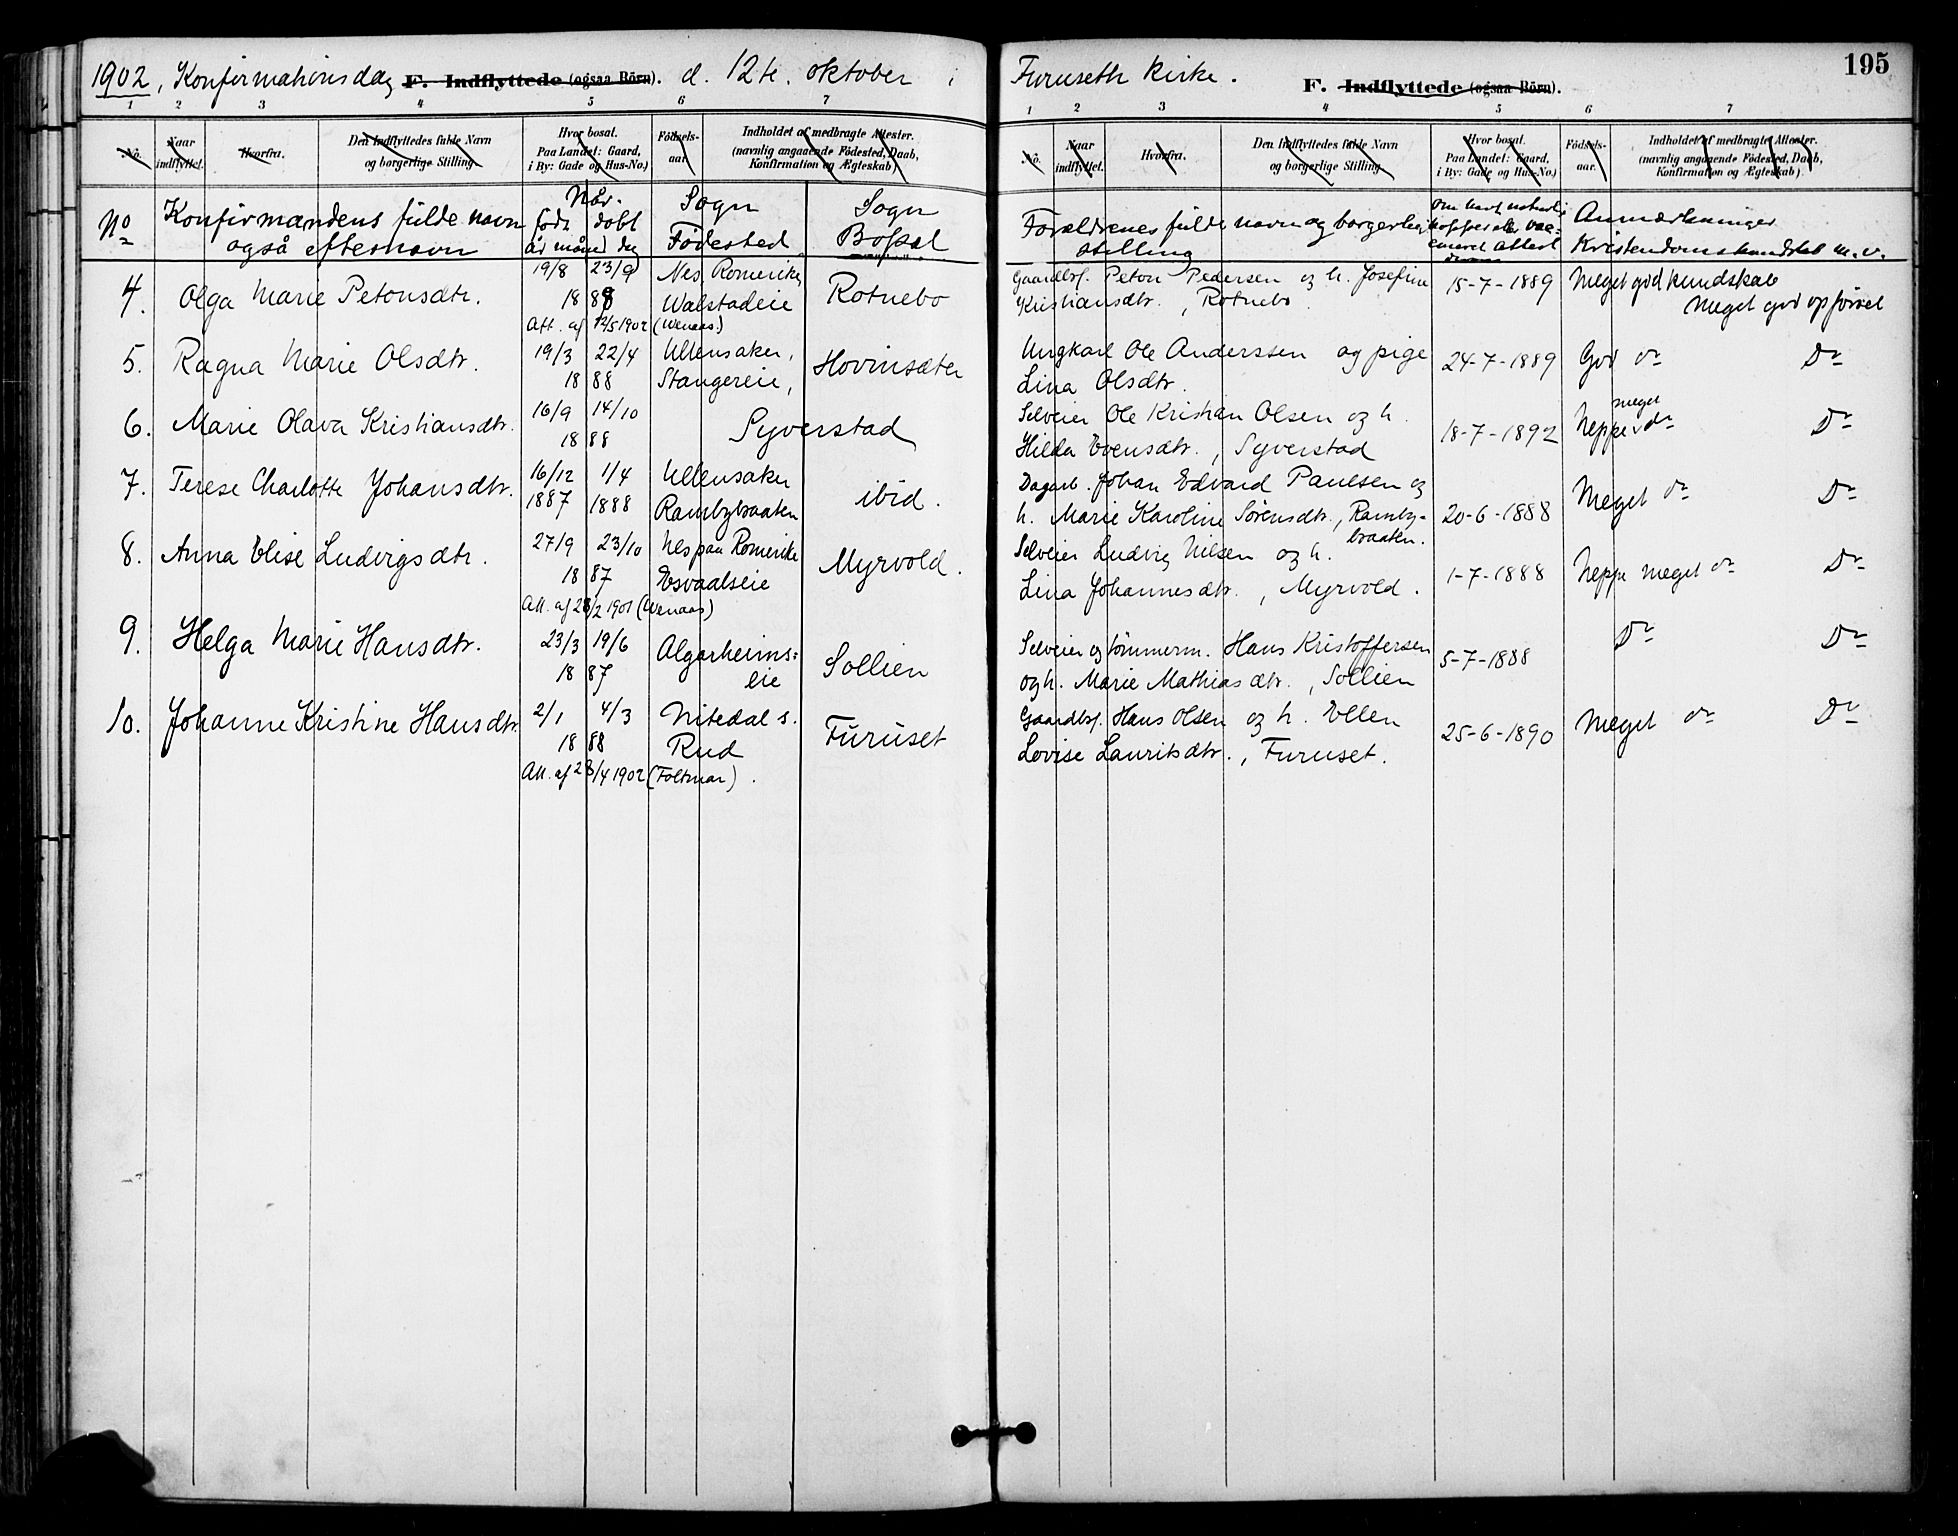 195
1902, Konfirmationsdag F. Indflyttede (ogsaa Börn). d. 12te. oktober i
1 2 3 4 5 6 7
No. Naar indflyttet. Hvorfra. Den Indflyttedes fulde Navn og borgerlige Stilling. Hvor bosat. Paa Landet: Gaard, i By: Gade og Hus-No.) Födsels-aar. Indholdet af medbragte Attester. (navnlig angaaende Födested, Daab, Konfirmation og Ægteskab)
No Konfirmandens fulde navn
også efternavn
Når.
født døbt
år måned dag
Sogn
Fødested
Sogn
Bopæl
4. Olga Marie Petersdtr.
19/8 23/9
18 88
Att. af 12/5 1902 (Wenaas)
Nes Romerike
Walstadeie
Rotnebo
5. Ragna Marie Olsdtr.
19/3 22/4
18 88
Ullensaker,
Stangereie,
Hovinsæter
6. Marie Olava Kristiansdtr.
16/9 14/10
18 88
Syverstad
7. Terese Charlotte Johansdtr.
16/12 1/4
1887 1888
Ullensaker
Rambybraaten
ibid.
8. Anna Elise Ludvigsdtr.
27/9 23/10
18 87
Att. af 28/2 1901 (Wenaas)
Nes paa Romerike
Esvaalseie
Myrvold.
9. Helga Marie Hansdtr.
23/3 19/6
18 87
Algarheims=
eie
Sollien
10. Johanne Kristine Hansdtr.
2/1 4/3
18 88
Att. af 28/4 1902 (Foltmar).
Nitedal s.
Rud
Furuset
Furuseth kirke. F. Indflyttede (ogsaa Börn).
1 2 3 4 5 6 7
No. Naar indflyttet. Hvorfra. Den Indflyttedes fulde Navn og borgerlige Stilling. Hvor bosat. Paa Landet: Gaard, i By: Gade og Hus-No.) Födsels-aar. Indholdet af medbragte Attester. (navnlig angaaende Födested, Daab, Konfirmation og Ægteskab).
Forældrenes fulde navn og borgerlig
stilling
om havt naturlig
kopper eller vac-
cineret attest
Anmærkninger
Kristendomskundskab m.v.
Gaardbr. Peter Pedersen og h. Josefine
Kristiansdtr., Rotnebo
15-7-1889
Meget god kundskab
Meget god opførsel
Ungkarl Ole Anderssen og pige
Lina Olsdtr.
24-7-1889
God do Do
Selveier Ole Kristian Olsen og h.
Hilda Evensdtr., Syverstad
18-7-1892
Neppe meget do Do
Dagarb. Johan Edvard Paulsen og
h. Marie Karoline Sørensdtr., Ramby-
braaten.
20-6-1888
Meget do Do
Selveier Ludvig Nilsen og h.
Lina Johannesdtr., Myrvold.
1-7-1888
Neppe meget do Do
Selveier og tømmerm. Hans Kristoffersen
og h. Marie Mathiasdtr., Sollien
5-7-1888
Do Do
Gaardbr. Hans Olsen og h. Ellen
Lovise Lauritsdtr., Furuset.
25-6-1890
Meget do Do